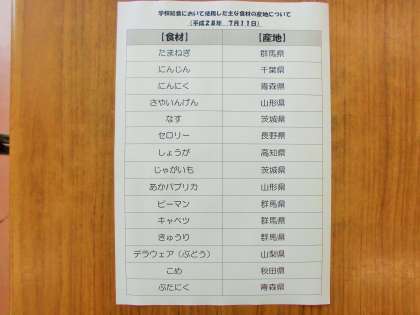 学校給食において使用した主な食材の産地について
(平成28年 7月11日)
【食材】 【産地】
たまねぎ 群馬県
にんじん 千葉県
にんにく 青森県
さやいんげん 山形県
なす 茨城県
セロリー 長野県
しょうが 高知県
じゃがいも 茨城県
あかパプリカ 山形県
ピーマン 群馬県
キャベツ 群馬県
きゅうり 群馬県
デラウェア(ぶどう) 山梨県
こめ 秋田県
ぶたにく 青森県